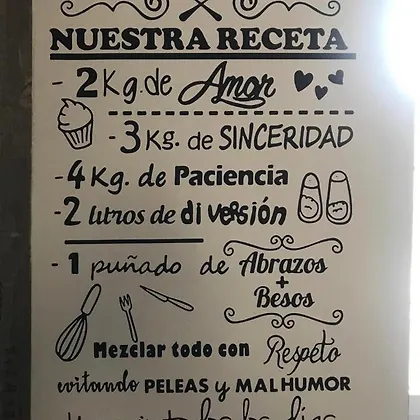 NUESTRA RECETA
- 2 Kg. de Amor
- 3 Kg. de SINCERIDAD
- 4 Kg. de Paciencia
- 2 litros de diversión
- 1 puñado de Abrazos
+
Besos
Mezclar todo con Respeto
evitando PELEAS y MALHUMOR
todos los días